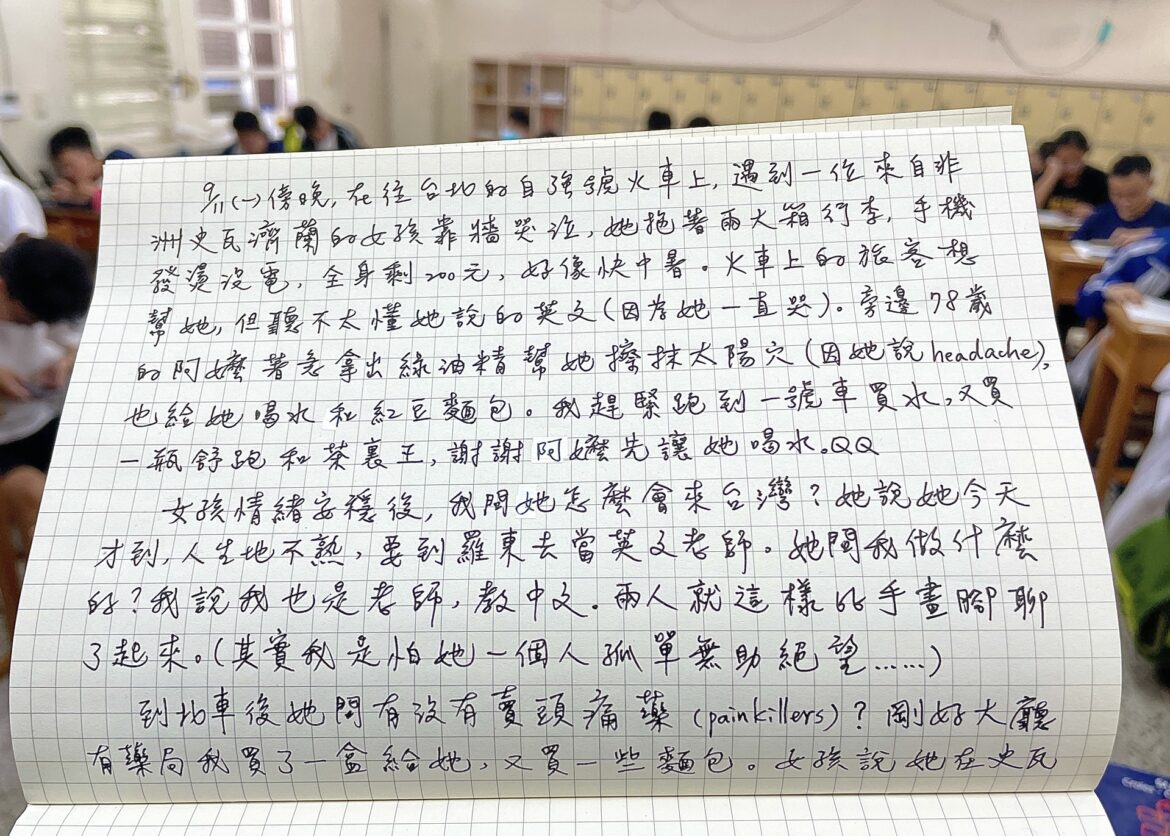 9/11(一)傍晚，在往台北的自強號火車上，遇到一位來自非
洲史瓦濟蘭的女孩靠牆哭泣，她拖著兩大箱行李，手機
發燙沒電，全身剩200元，好像快中暑。火車上的旅客想
幫她，但聽不太懂她說的英文(因為她一直哭)。旁邊78歲
的阿嬤著急拿出綠油精幫她擦抹太陽穴(因她說headache)，
也給她喝水和紅豆麵包。我趕緊跑到一號車買水，又買
一瓶舒跑和茶裏王，謝謝阿嬤先讓她喝水。QQ
女孩情緒安穩後，我問她怎麼會來台灣？她說她今天
才到，人生地不熟，要到羅東去當英文老師。她問我做什麼
的？我說我也是老師，教中文。兩人就這樣比手畫腳聊
了起來。(其實我是怕她一個人孤單無助絕望……)
到北車後她問有沒有賣頭痛藥(painkillers)？剛好大廳
有藥局我買了一盒給她，又買一些麵包。女孩說她在史瓦